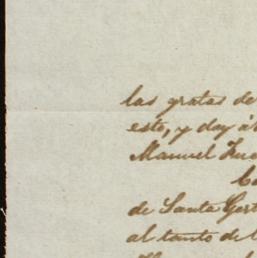 las gratas de
esto, y doy á
Manuel
de Santa Gert
al tanto de l